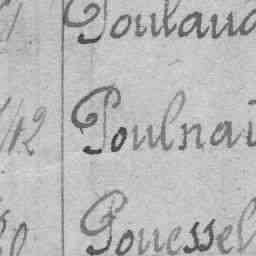 Poulaud
12 Poulnai
Pouessel